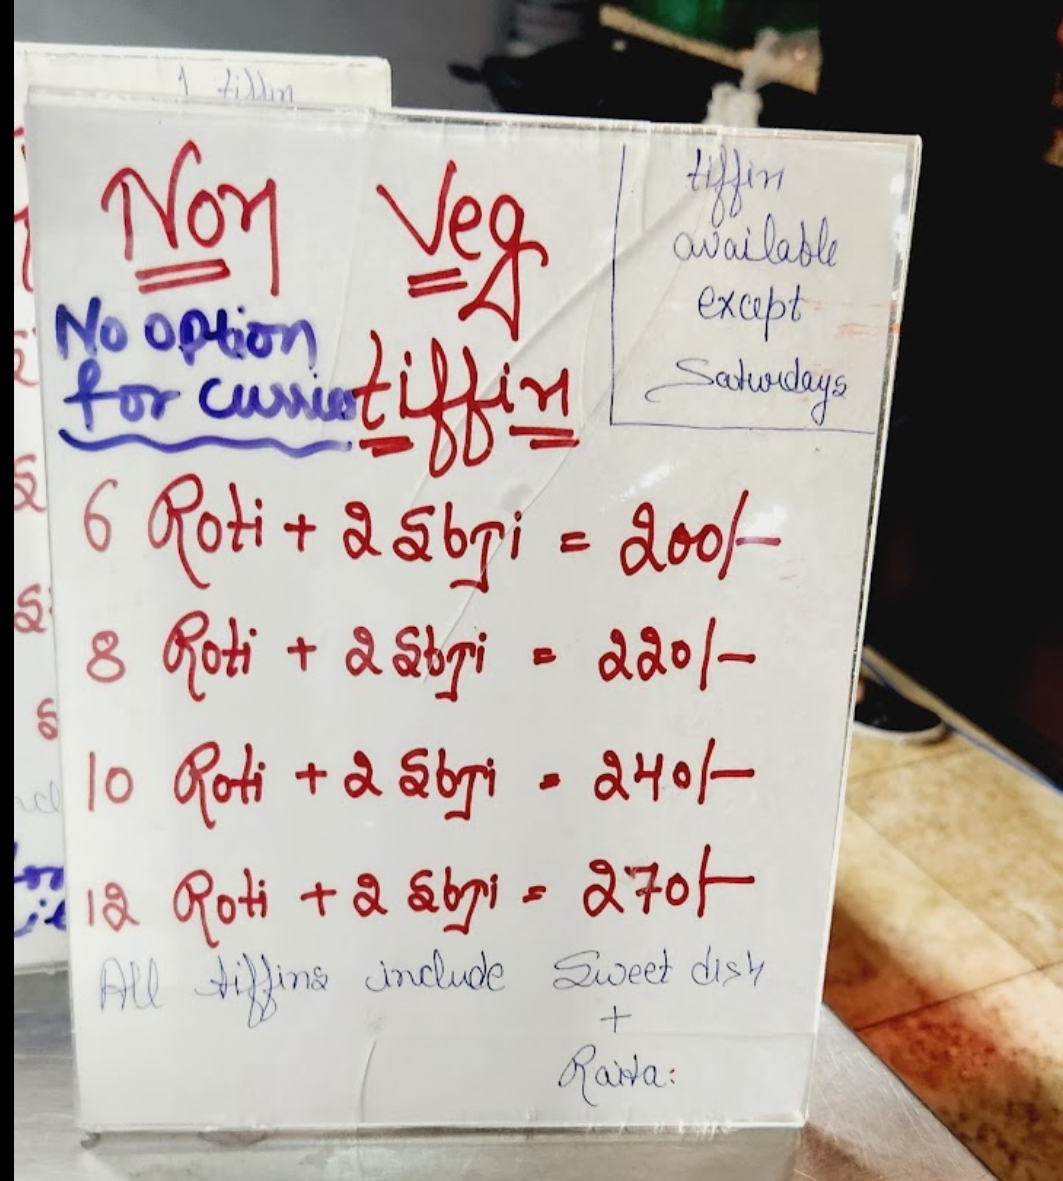 1 tiffin
Non Veg
tiffin
No option
for curries
tiffin
available
except
Saturdays
6 Roti + 2 Sbji = 200/-
8 Roti + 2 Sbji = 220/-
10 Roti + 2 Sbji = 240/-
12 Roti + 2 Sbji = 270/-
All tiffins include Sweet dish
+
Raita: